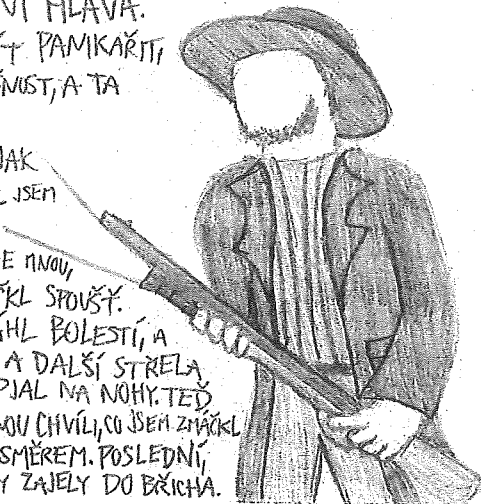 NÍ HLAVA.
PANIKAŘIT,
NOST, A TA
JAK
JSEM
E MNOU,
ČKL SPOUŠŤ.
HL BOLESTÍ, A
A DALŠÍ STŘELA
PJAL NA NOHY. TEĎ
NOU CHVÍLI, CO JSEM ZMÁČKL
SMĚREM. POSLEDNÍ,
Y ZAJELY DO BŘICHA.